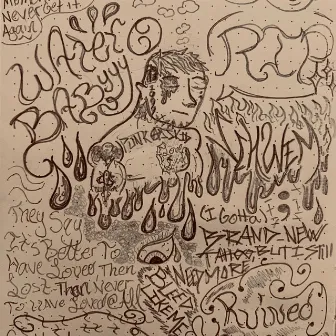 Never Get it
Again
WATER
BABYYY
RIP
They Say
It's Better To
Have Loved Then
Lost Than Never
To Have Loved @ All
(I Gotta
BRAND NEW
TATTOO BUT I STill
NEED MORE
LIKE ME
Ruined